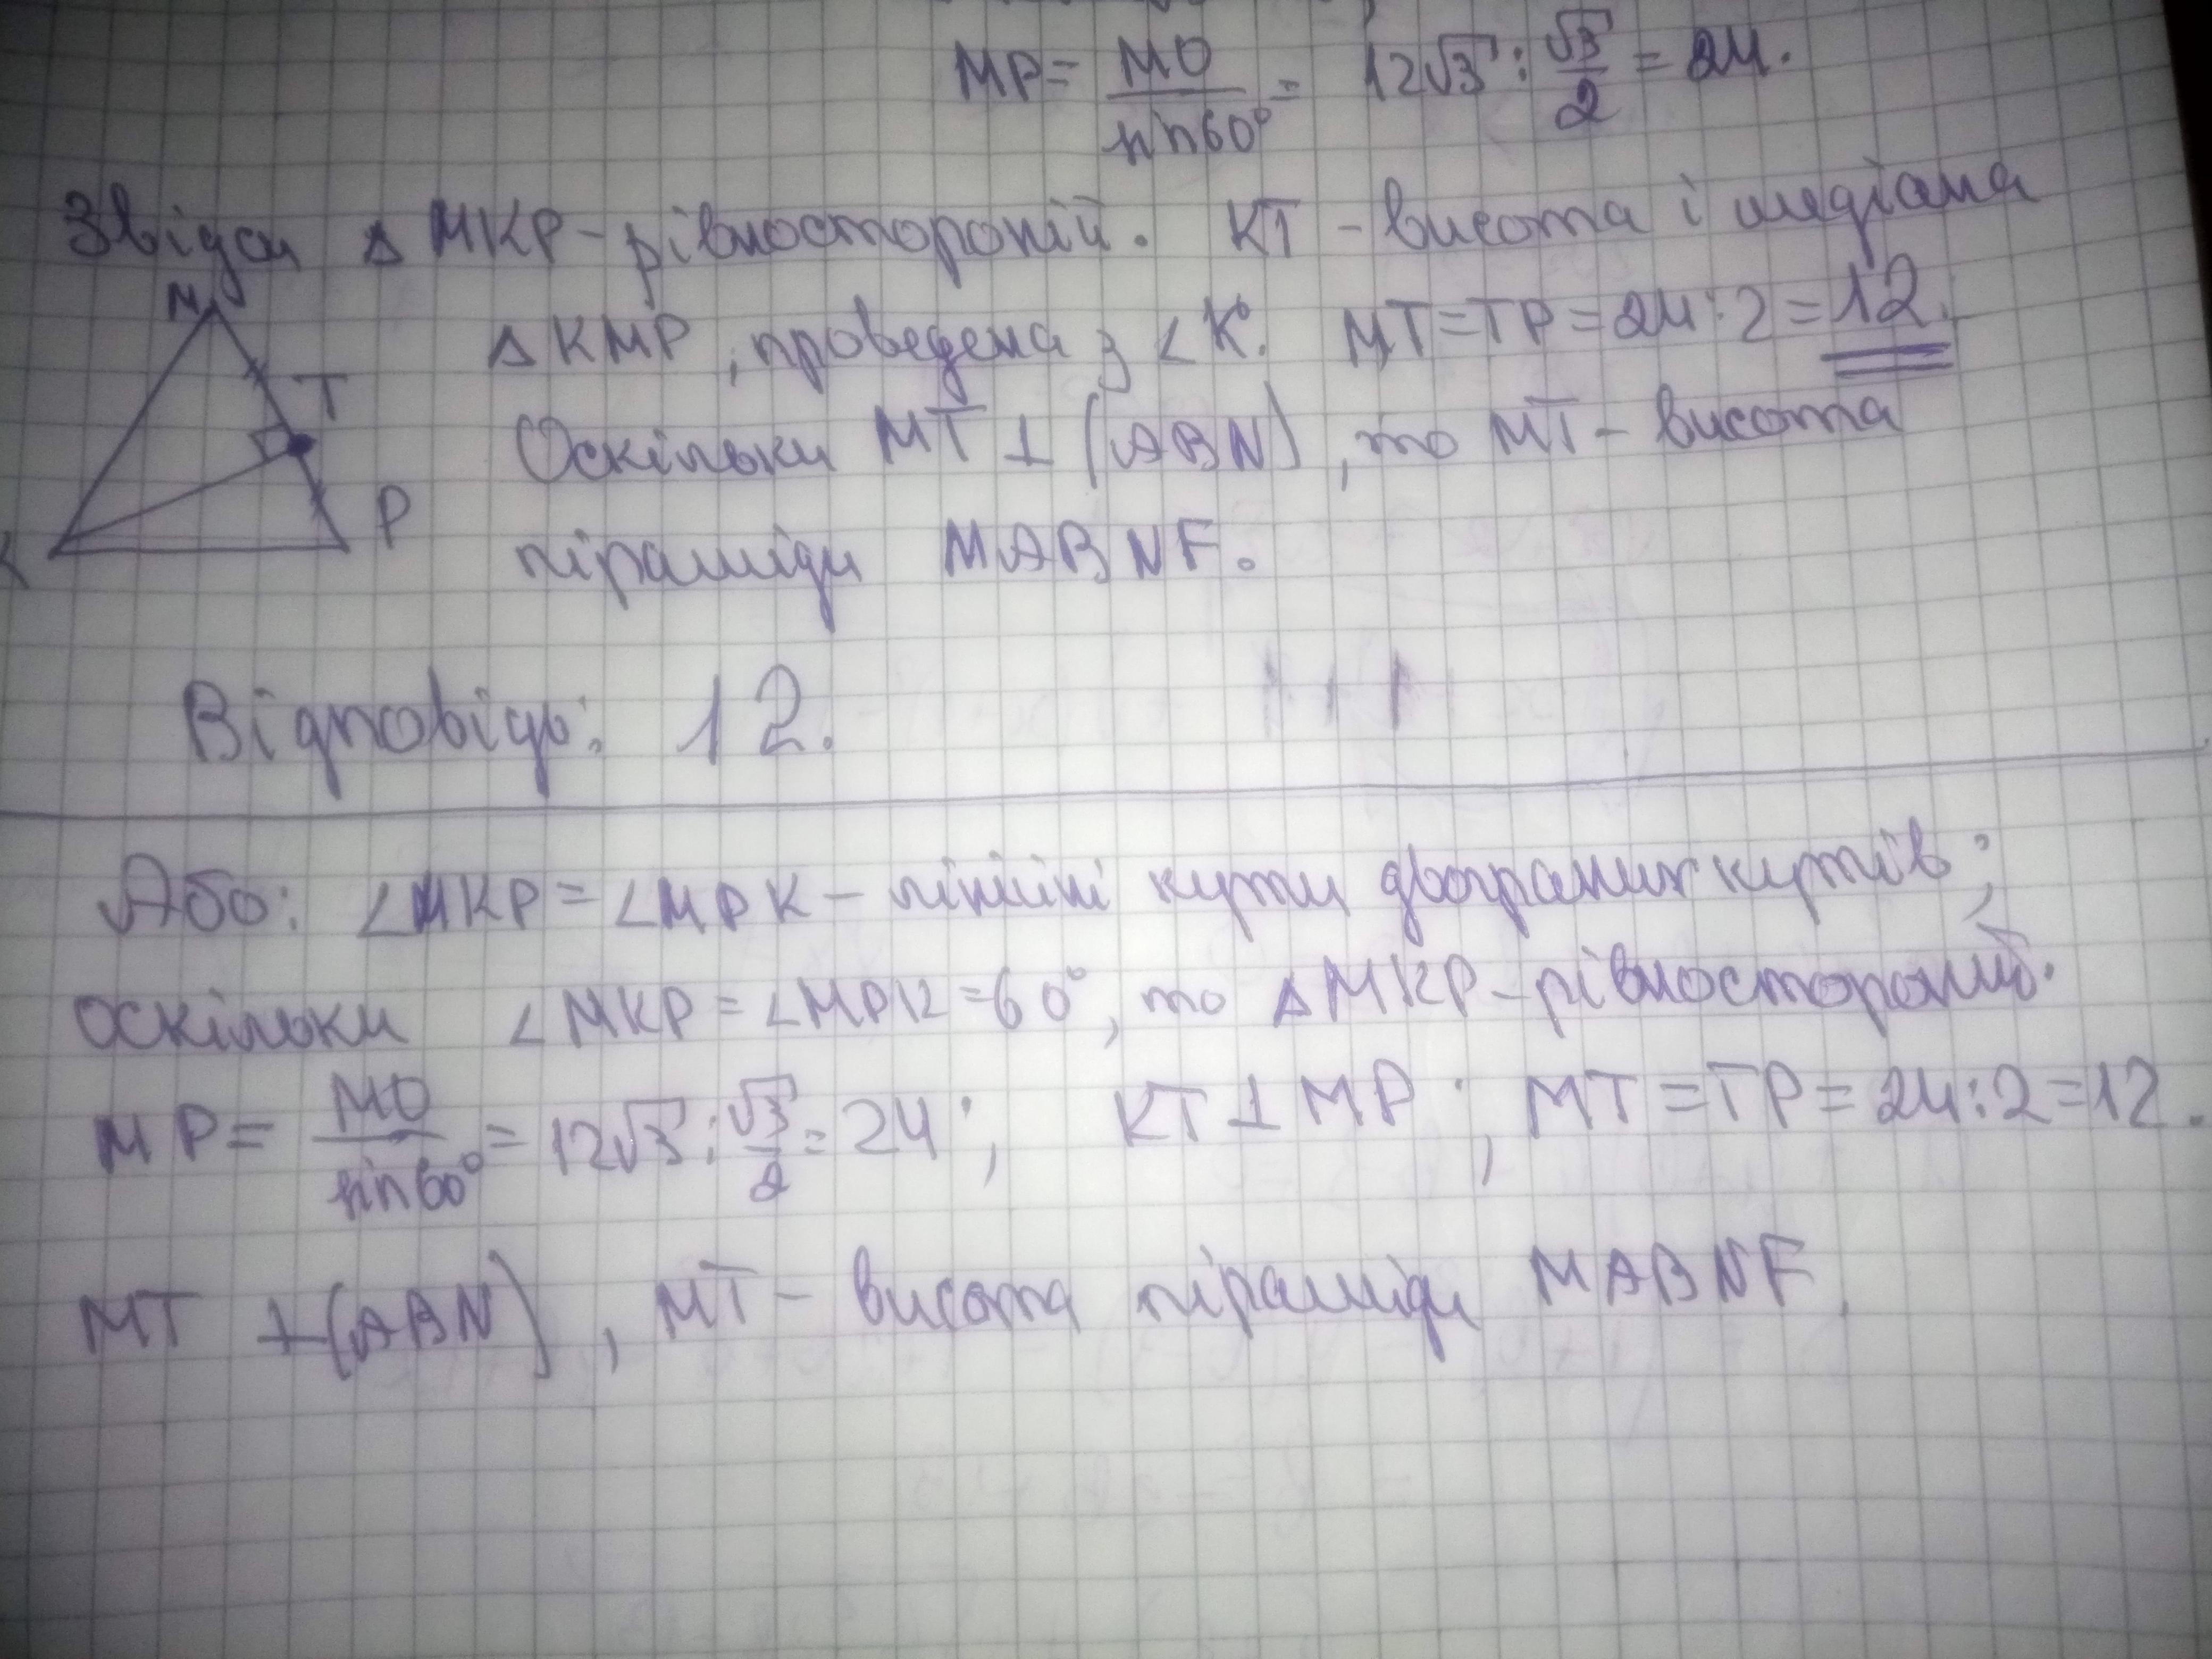 MP = MO / sin60° = 12√3 : √3/2 = 24.
Звідси △ MKP - рівносторонній. KT - висота і медіана
M
△ KMP, проведена з ∠K. MT = TP = 24 : 2 = 12.
T
Оскільки MT ⊥ (ABN), то MT - висота
P
K
піраміди MABNF.
Відповідь: 12.
Або: ∠MKP = ∠MPK - лінійні кути двогранних кутів;
оскільки ∠MKP = ∠MPK = 60°, то △ MKP - рівносторонній.
MP = MO / sin60° = 12√3 : √3/2 = 24; KT ⊥ MP; MT = TP = 24 : 2 = 12.
MT ⊥ (ABN), MT - висота піраміди MABNF.